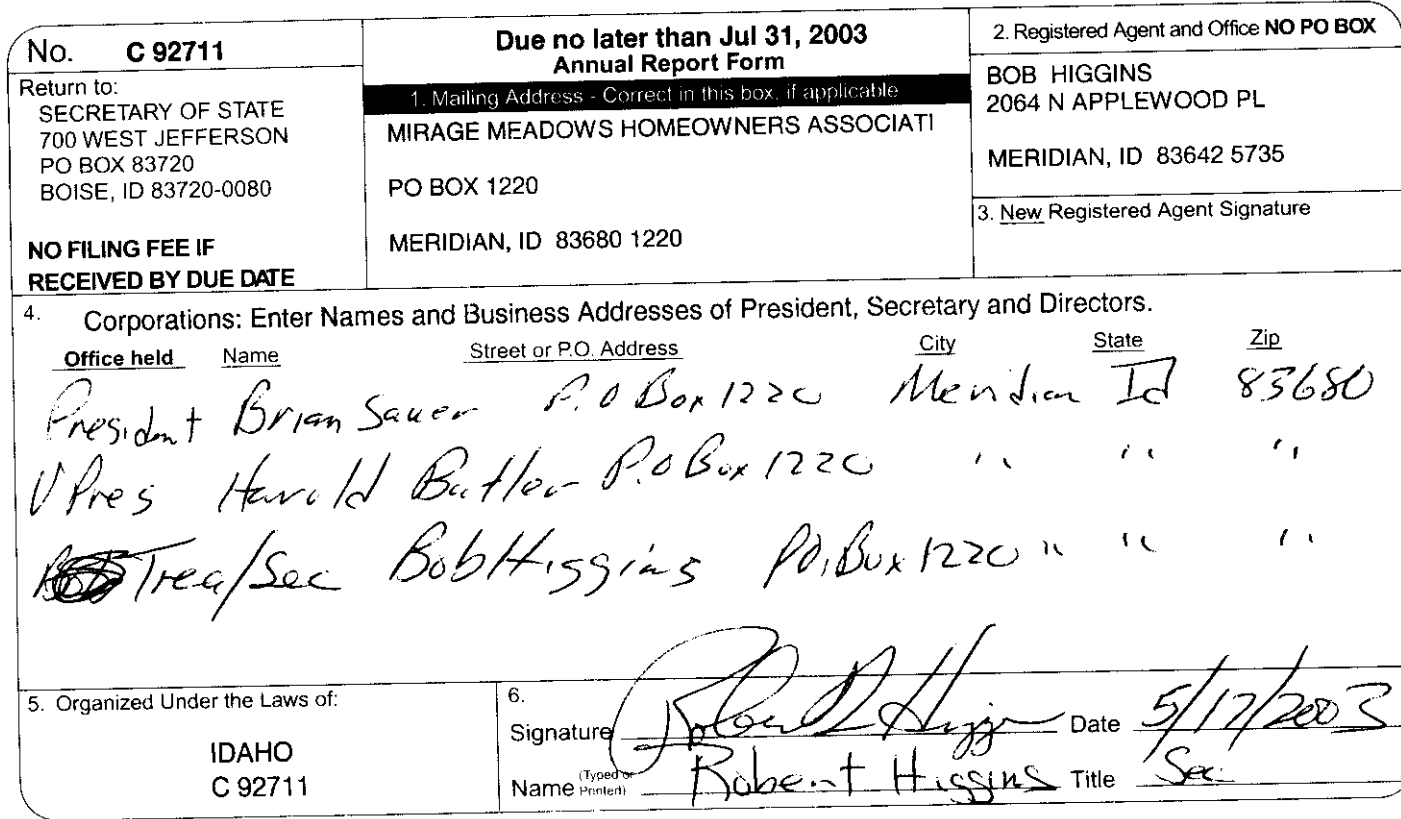 No. C 92711
Return to:
SECRETARY OF STATE
700 WEST JEFFERSON
PO BOX 83720
BOISE, ID 83720-0080
NO FILING FEE IF
RECEIVED BY DUE DATE
Due no later than Jul 31, 2003
Annual Report Form
1. Mailing Address - Correct in this box, if applicable
MIRAGE MEADOWS HOMEOWNERS ASSOCIATI
PO BOX 1220
MERIDIAN, ID 83680 1220
2. Registered Agent and Office NO PO BOX
BOB HIGGINS
2064 N APPLEWOOD PL
MERIDIAN, ID 83642 5735
3. New Registered Agent Signature
4. Corporations: Enter Names and Business Addresses of President, Secretary and Directors.
Office held Name Street or P.O. Address City State Zip
President Brian Sauer P.O Box 1220 Meridian Id 83680
V Pres Harold Butler P.O Box 1220 " " "
Trea/Sec Bob Higgins P.O. Box 1220 " " "
5. Organized Under the Laws of:
IDAHO
C 92711
6.
Signature Robert D Higgins Date 5/17/2003
Name (Typed or Printed) Robert Higgins Title Sec